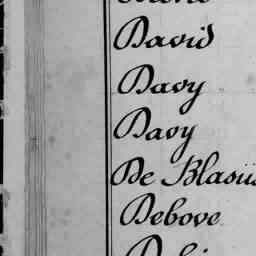 David
Davy
Davy
De Blasiis
Debove